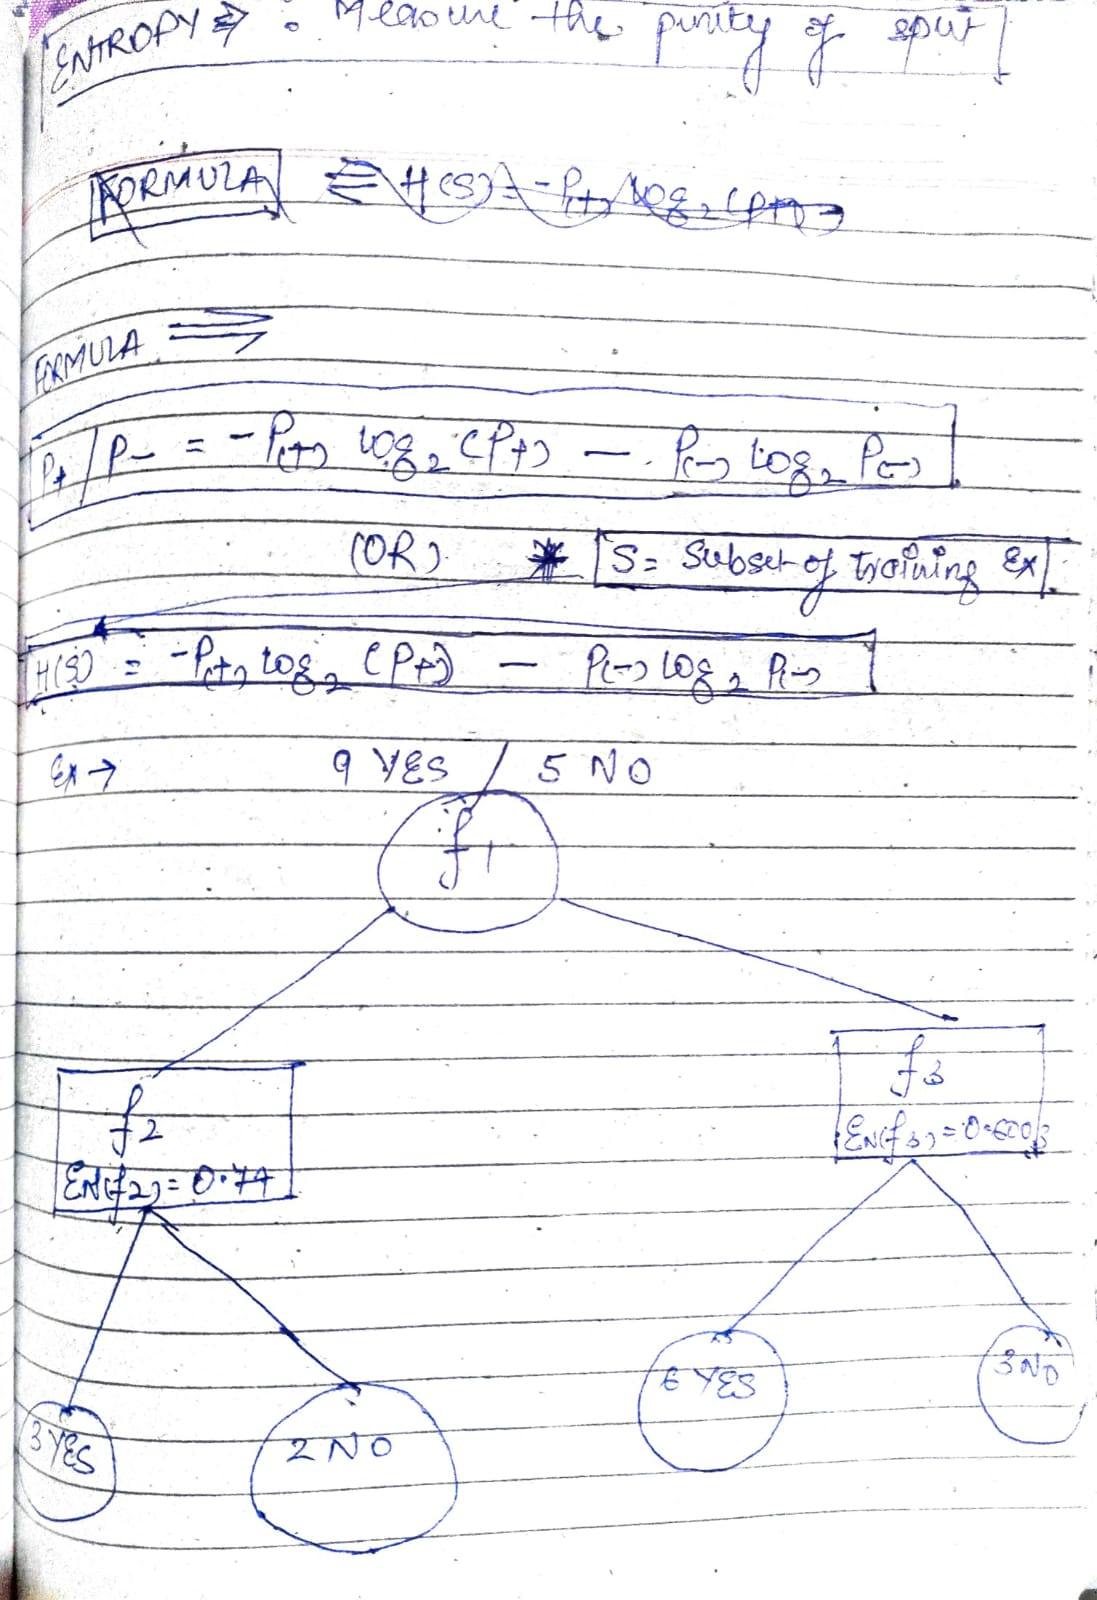 ENTROPY ⇒ : Measure the purity of split
FORMULA ⇒ H(S) = -P(+) log₂ (P+)
FORMULA ⇒
P+/P- = -P(+) log₂ (P+) - P(-) log₂ P(-)
(OR) * S = Subset of training Ex
H(S) = -P(+) log₂ (P+) - P(-) log₂ P(-)
Ex → 9 YES / 5 NO
f1
f2
EN(f2) = 0.74
f3
EN(f3) = 0.6003
3 YES
2 NO
6 YES
3 NO